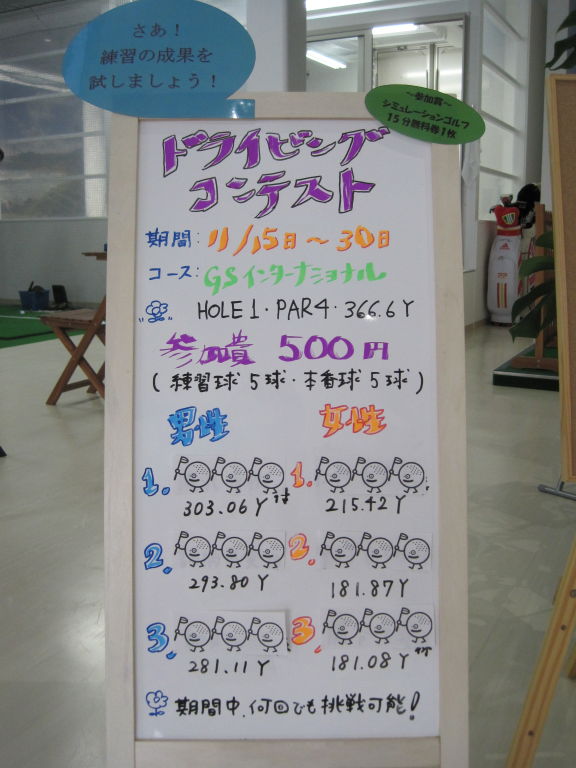 さあ！
練習の成果を
試しましょう！
～参加賞～
シミュレーションゴルフ
15分無料券1枚
ドライビング
コンテスト
期間：11/15日～30日
コース：GSインターナショナル
HOLE1・PAR4・366.6Y
参加費 500円
(練習球5球・本番球5球)
男性 女性
1. 1.
303.06Y 215.42Y
2. 2.
293.80Y 181.87Y
3. 3.
281.11Y 181.08Y
期間中、何回でも挑戦可能！